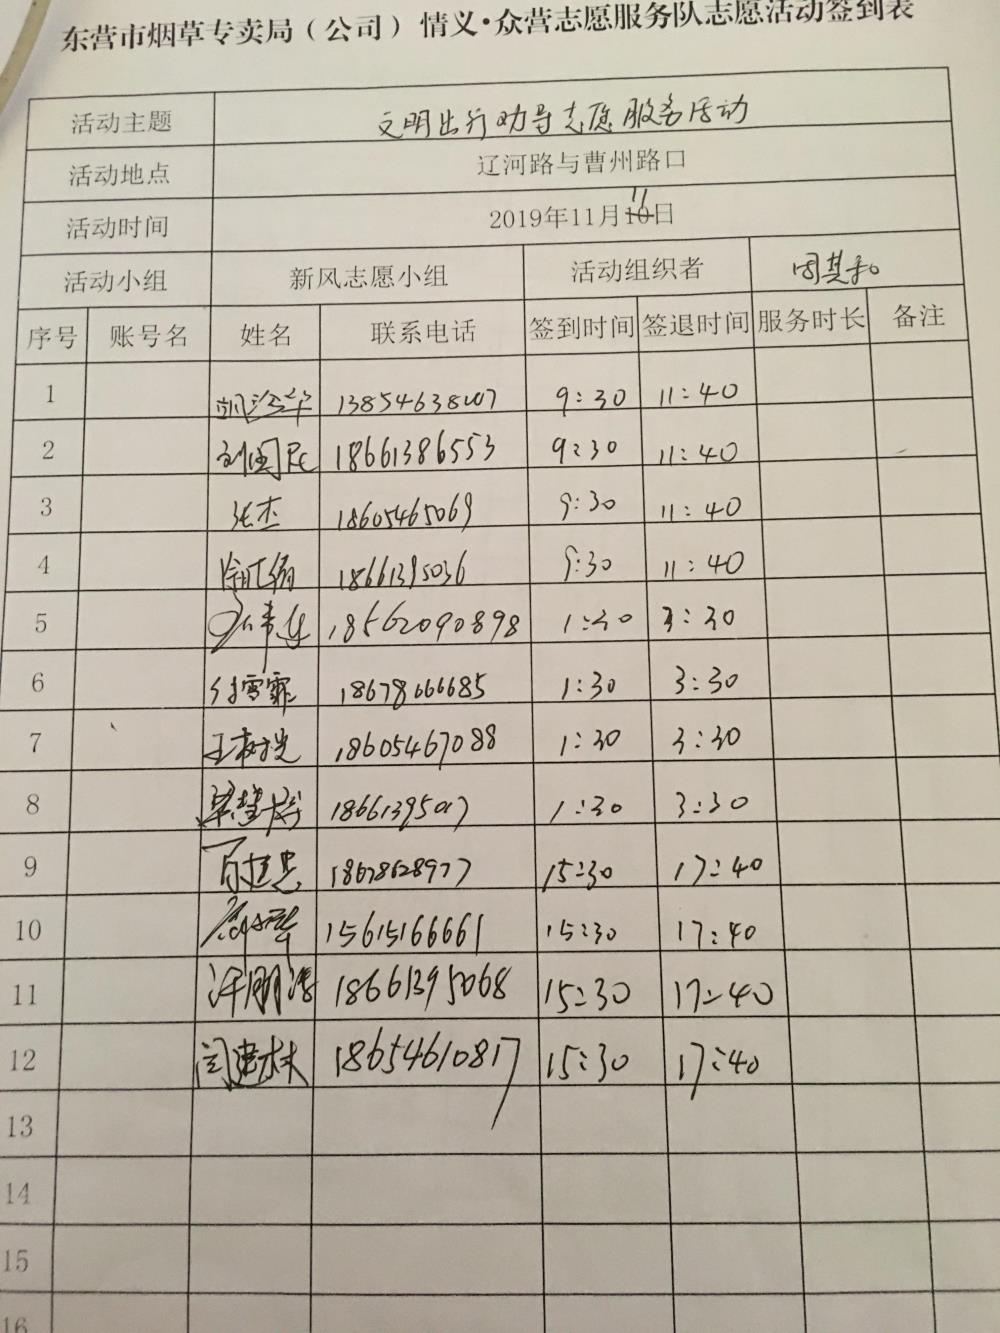 东营市烟草专卖局（公司）情义·众营志愿服务队志愿活动签到表
活动主题 文明出行劝导志愿服务活动
活动地点 辽河路与曹州路口
活动时间 2019年11月11日
活动小组 新风志愿小组 活动组织者
序号 账号名 姓名 联系电话 签到时间 签退时间 服务时长 备注
1 9:30 11:40
2 刘国民 18661386553 9:30 11:40
3 张杰 18605465069 9:30 11:40
4 18661395036 9:30 11:40
5 18562090898 1:30 3:30
6 付雪霏 18678666685 1:30 3:30
7 18605467088 1:30 3:30
8 18661395017 1:30 3:30
9 18678628977 15:30 17:40
10 15615166661 15:30 17:40
11 18661395068 15:30 17:40
12 闫建林 18654610817 15:30 17:40
13
14
15
16